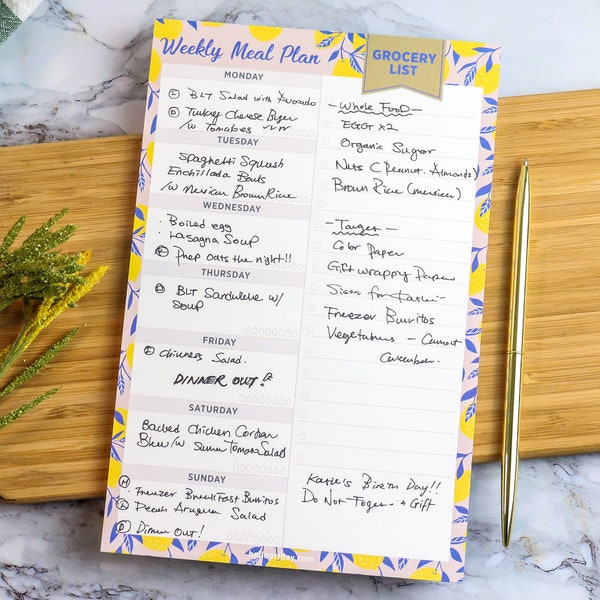 Weekly Meal Plan
GROCERY
LIST
MONDAY
L BLT Salad with Avocado
D Turkey Cheese Burger
/w Tomatoes
TUESDAY
Spaghetti Squash
Enchillada Bowls
/w Mexican Brown Rice
WEDNESDAY
Boiled egg
Lasagna Soup
Prep oats the night!!
THURSDAY
BLT Sandwich w/
Soup
FRIDAY
Chinese Salad.
DINNER OUT!
SATURDAY
Backed Chicken Cordan
Bleu /w Summ Tomato Salad
SUNDAY
Freezer BreakFast Burritos
Peach Arugua Salad
D Dinner OUT!
- Whole Food -
EGGT x2
Organic Sugar
Nuts (Peanut, Almonds)
Brown Rice (mexican)
- Target -
Color Paper
Gift wrappy Paper
for
Freezer Burritos
Vegetables - Carrot
Cucumber
Katie's Birth Day!!
Do Not Forget + Gift